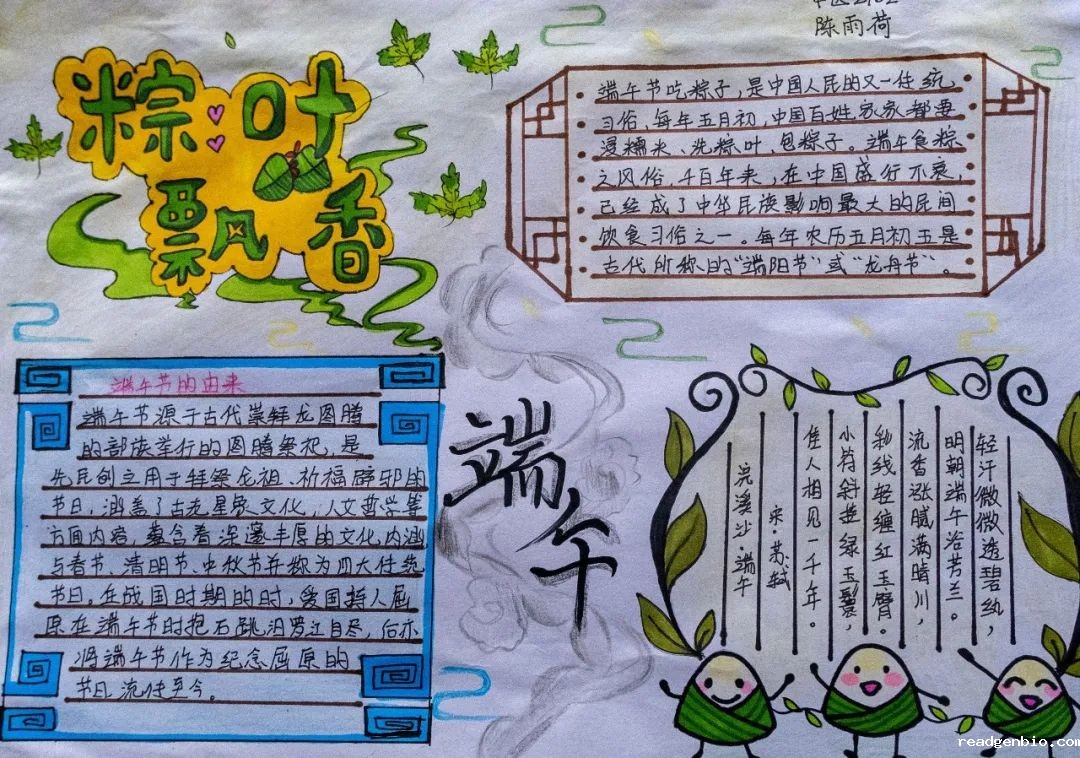 陈雨荷
粽叶
飘香
端午节吃粽子，是中国人民的又一传统
习俗，每年五月初，中国百姓家家都要
浸糯米、洗粽叶、包粽子。端午食粽
之风俗，千百年来，在中国盛行不衰，
已经成了中华民族影响最大的民间
饮食习俗之一。每年农历五月初五是
古代所称的“端阳节”或“龙舟节”。
端午节的由来
端午节源于古代崇拜龙图腾
的部族举行的图腾祭祀，是
先民创立用于拜祭龙祖、祈福辟邪的
节日，涵盖了古老星象文化，人文哲学等
方面内容，蕴含着深邃丰厚的文化内涵
与春节、清明节、中秋节并称为四大传统
节日。在战国时期的时，爱国诗人屈
原在端午节时抱石跳汨罗江自尽，后亦
将端午节作为纪念屈原的
节日流传至今。
端午
轻汗微微透碧纨，
明朝端午浴芳兰。
流香涨腻满晴川，
彩线轻缠红玉臂。
小符斜挂绿玉鬟，
佳人相见一千年。
宋·苏轼
浣溪沙·端午
readgenbio.com